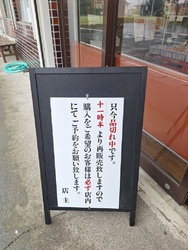 只今品切れ中です。
十一時半より再販売致しますので
購入をご希望のお客様は必ず店内
にてご予約をお願い致します。
店主